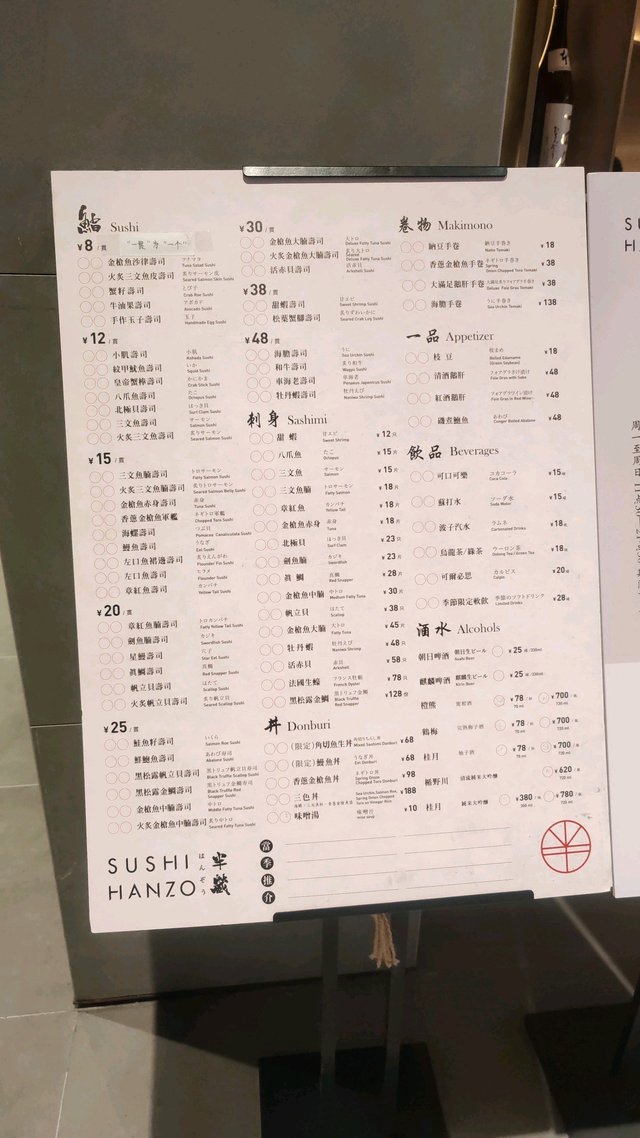 鮨 Sushi
¥8/貫 "一貫"为"一个"
金槍魚沙律壽司 ツナマヨ Tuna Salad Sushi
火炙三文魚皮壽司 炙りサーモン皮 Seared Salmon Skin Sushi
蟹籽壽司 とび子 Crab Roe Sushi
牛油果壽司 アボガド Avocado Sushi
手作玉子壽司 玉子 Handmade Egg Sushi
¥12/貫
小肌壽司 小肌 Kohada Sushi
紋甲魷魚壽司 いか Squid Sushi
皇帝蟹棒壽司 かにかま Crab Stick Sushi
八爪魚壽司 たこ Octopus Sushi
北極貝壽司 ほっき貝 Surf Clam Sushi
三文魚壽司 サーモン Salmon Sushi
火炙三文魚壽司 炙りサーモン Seared Salmon Sushi
¥15/貫
三文魚腩壽司 トロサーモン Fatty Salmon Sushi
火炙三文魚腩壽司 炙りトロサーモン Seared Salmon Belly Sushi
金槍魚赤身壽司 赤身 Tuna Sushi
香蔥金槍魚軍艦 ネギトロ軍艦 Chopped Toro Sushi
海螺壽司 つぶ貝 Pomacea Canaliculata Sushi
鰻魚壽司 うなぎ Eel Sushi
左口魚裙邊壽司 炙りえんがわ Flounder Fin Sushi
左口魚壽司 ヒラメ Flounder Sushi
章紅魚壽司 カンパチ Yellow Tail Sushi
¥20/貫
章紅魚腩壽司 トロカンパチ Fatty Yellow Tail Sushi
劍魚腩壽司 カジキ Swordfish Sushi
星鰻壽司 穴子 Star Eel Sushi
真鯛壽司 真鯛 Red Snapper Sushi
帆立貝壽司 ほたて Scallop Sushi
火炙帆立貝壽司 炙り帆立貝 Seared Scallop Sushi
¥25/貫
鮭魚籽壽司 いくら Salmon Roe Sushi
鮮鮑魚壽司 あわび寿司 Abalone Sushi
黑松露帆立貝壽司 黒トリュフ帆立貝寿司 Black Truffle Scallop Sushi
黑松露金鯛壽司 黒トリュフ金鯛寿司 Black Truffle Red Snapper Sushi
金槍魚中腩壽司 中トロ Middle Fatty Tuna Sushi
火炙金槍魚中腩壽司 炙り中トロ Seared Fatty Tuna Sushi
SUSHI HANZO はんぞう 半藏
¥30/貫
金槍魚大腩壽司 大トロ Deluxe Fatty Tuna Sushi
火炙金槍魚大腩壽司 炙り大トロ Seared Deluxe Fatty Tuna Sushi
活赤貝壽司 活赤貝 Arkshell Sushi
¥38/貫
甜蝦壽司 甘エビ Sweet Shrimp Sushi
松葉蟹腳壽司 炙りずわいかに Seared Crab Leg Sushi
¥48/貫
海膽壽司 うに Sea Urchin Sushi
和牛壽司 炙り和牛 Wagyu Sushi
車海老壽司 車海老 Penaeus Japonicus Sushi
牡丹蝦壽司 牡丹えび Naniwa Shrimp Sushi
刺身 Sashimi
甜蝦 甘エビ Sweet Shrimp ¥12/只
八爪魚 たこ Octopus ¥15/片
三文魚 サーモン Salmon ¥15/片
三文魚腩 トロサーモン Fatty Salmon ¥18/片
章紅魚 カンパチ Yellow Tail ¥18/片
金槍魚赤身 赤身 Tuna ¥18/片
北極貝 ほっき貝 Surf Clam ¥23/只
劍魚腩 カジキ Swordfish ¥23/片
真鯛 真鯛 Red Snapper ¥28/片
金槍魚中腩 中トロ Medium Fatty Tuna ¥30/片
帆立貝 ほたて Scallop ¥38/只
金槍魚大腩 大トロ Fatty Tuna ¥45/片
牡丹蝦 牡丹えび Naniwa Shrimp ¥48/只
活赤貝 赤貝 Arkshell ¥58/只
法國生蠔 フランス牡蠣 French Oyster ¥78/只
黑松露金鯛 黒トリュフ金鯛 Black Truffle Red Snapper ¥128/份
丼 Donburi
(限定)角切魚生丼 角切りちらし丼 Mixed Sashimi Donburi ¥68
(限定)鰻魚丼 うなぎ丼 Eel Donburi ¥68
香蔥金槍魚丼 ネギトロ丼 Spring Onion Chopped Toro Donburi ¥98
三色丼 Sea Urchin,Salmon Roe, Spring Onion Chopped Toro on Vinegar Rice ¥188
味噌湯 味噌汁 miso soup ¥10
當季推介
卷物 Makimono
納豆手卷 納豆手巻き Natto Temaki ¥18
香蔥金槍魚手卷 ネギトロ手巻き Spring Onion Chopped Toro Temaki ¥38
大滿足鵝肝手卷 大満足フォアグラ手巻き Deluxe Foie Gras Temaki ¥38
海膽手卷 うに手巻き Sea Urchin Temaki ¥138
一品 Appetizer
枝豆 枝まめ Boiled Edamame (Green Soybean) ¥18
清酒鵝肝 フォアグラ酒漬け Foie Gras with Sake ¥48
紅酒鵝肝 フォアグラワイン漬け Foie Gras in Red Wine ¥48
磯煮鮑魚 あわび Conger Boiled Abalone ¥48
飲品 Beverages
可口可樂 コカコーラ Coca Cola ¥15/罐
蘇打水 ソーダ水 Soda Water ¥15/罐
波子汽水 ラムネ Carbonated Drinks ¥18/瓶
烏龍茶/綠茶 ウーロン茶 Oolong Tea/Green Tea ¥18/瓶
可爾必思 カルピス Calpis ¥20/罐
季節限定軟飲 季節のソフトドリンク Limited Drinks ¥28/瓶
酒水 Alcohols
朝日啤酒 朝日生ビール Asahi Beer ¥25/罐/330ml
麒麟啤酒 麒麟生ビール Kirin Beer ¥25/罐/330ml
橙熊 蜜柑酒 ¥78/杯 70 ml ¥700/瓶 720 ml
鶴梅 完熟梅子酒 ¥78/杯 70 ml ¥700/瓶 720 ml
桂月 柚子酒 ¥78/杯 70 ml ¥700/瓶 720 ml
楯野川 清流純米大吟釀 ¥620/瓶 720 ml
桂月 純米大吟釀 ¥380/瓶 300 ml ¥780/瓶 720 ml
SU
H